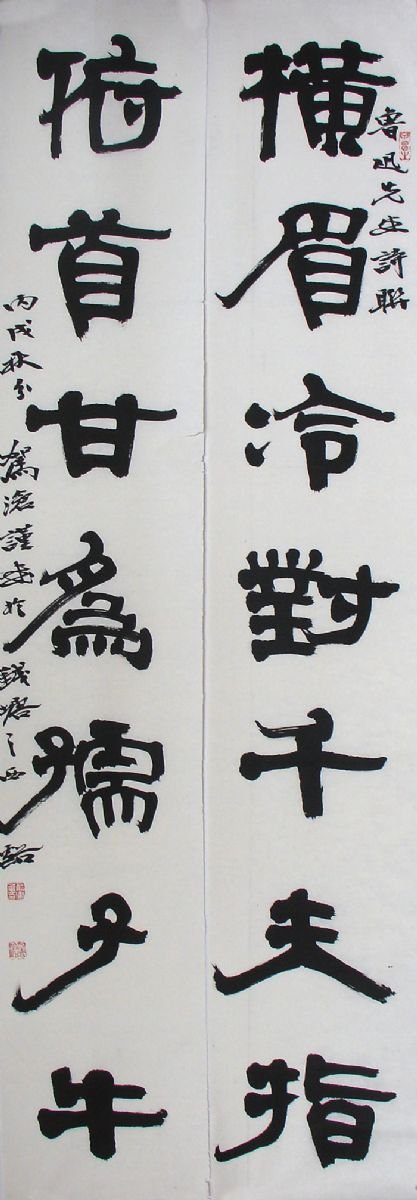 魯迅先生詩聯
橫眉冷對千夫指
俯首甘爲孺子牛
丙戌秋分 滄謹書於錢塘之西谿